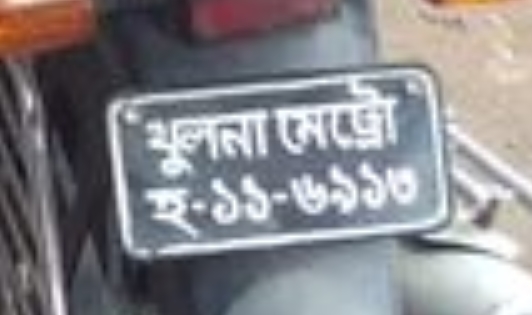 খুলনা মেট্রো
হ-১১-৬১১৬